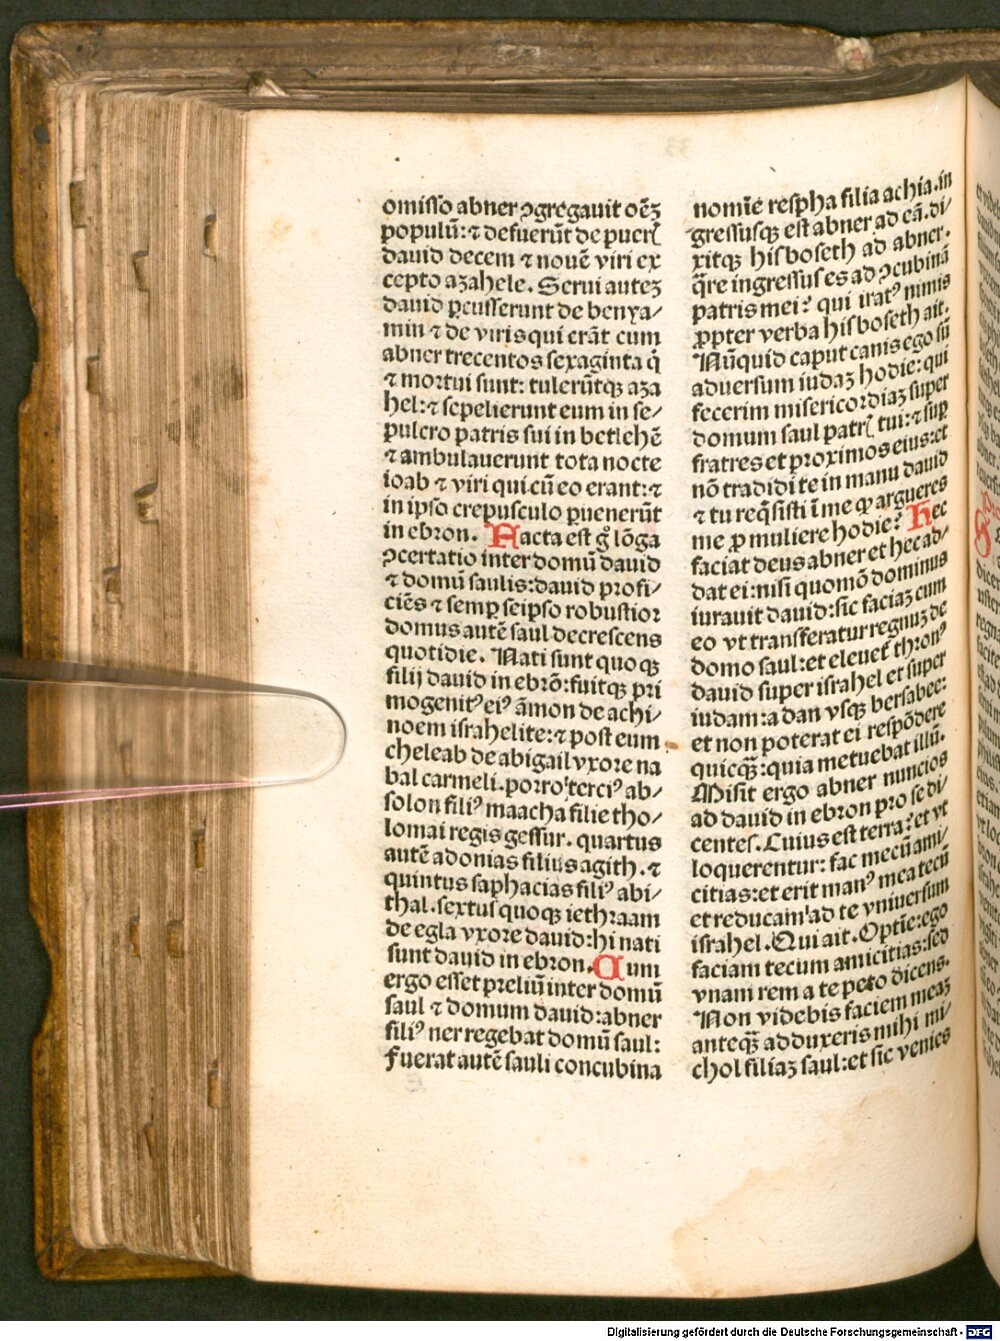 omisso abner ꝯgregauit oēꝫ
populū: ⁊ defuerūt de puerꝭ
dauid decem ⁊ nouē viri ex
cepto aꝫahele. Serui auteꝫ
dauid ꝑcusserunt de benya/
min ⁊ de viris qui erāt cum
abner trecentos sexaginta q̇
⁊ mortui sunt: tulerūtqꝫ aꝫa
hel: ⁊ sepelierunt eum in se/
pulcro patris sui in betlehē
⁊ ambulauerunt tota nocte
ioab ⁊ viri qui cū eo erant: ⁊
in ipso crepusculo ꝑuenerūt
in ebron. Facta est g̊ lōga
ꝯcertatio inter domū dauid
⁊ domū saulis: dauid profi/
ciēs ⁊ semꝑ seipso robustior
domus autē saul decrescens
quotidie. Nati sunt quoqꝫ
filij dauid in ebrō: fuitqꝫ pri
mogenitꝰ eiꝰ āmon de achi/
noem israhelite: ⁊ post eum
cheleab de abigail vxore na
bal carmeli. porro terciꝰ ab/
solon filiꝰ maacha filie tho/
lomai regis gessur. quartus
autē adonias filius agith. ⁊
quintus saphacias filiꝰ abi/
thal. sextus quoqꝫ iethraam
de egla vxore dauid: hi nati
sunt dauid in ebron. Cum
ergo esset preliū inter domū
saul ⁊ domum dauid: abner
filiꝰ ner regebat domū saul:
fuerat autē sauli concubina
nomīe respha filia achia. in
gressusqꝫ est abner ad eā. di/
xitqꝫ hisboseth ad abner.
q̄re ingressus es ad ꝯcubinā
patris mei? qui iratꝰ nimis
ꝓpter verba hisboseth ait.
Nūquid caput canis ego sū
aduersum iudaꝫ hodie: qui
fecerim misericordiaꝫ super
domum saul patrꝭ tui: ⁊ suꝑ
fratres et proximos eius: et
nō tradidi te in manu dauid
⁊ tu req̇sisti ī me qꝫ argueres
me ꝓ muliere hodie? Hec
faciat deus abner et hec ad/
dat ei: nisi quomō dominus
iurauit dauid: sic faciaꝫ cum
eo vt transferatur regnuꝫ de
domo saul: et eleuet̄ thronꝰ
dauid super israhel et super
iudam: a dan vsqꝫ bersabee:
et non poterat ei respōdere
quicq̄ꝫ: quia metuebat illū.
Misit ergo abner nuncios
ad dauid in ebron pro se di/
centes. Cuius est terra? et vt
loquerentur: fac mecū ami/
citias: et erit manꝰ mea tecū
et reducam ad te vniuersum
israhel. Qui ait. Optīe: ego
faciam tecum amicitias: sed
vnam rem a te peto dicens.
Non videbis faciem meaꝫ
anteq̄ꝫ adduxeris mihi mi/
chol filiaꝫ saul: et sic venies
Digitalisierung gefördert durch die Deutsche Forschungsgemeinschaft - DFG